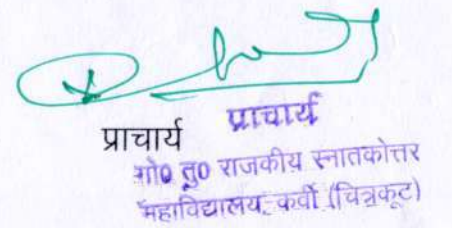 प्राचार्य प्राचार्य
गो० तु० राजकीय स्नातकोत्तर
महाविद्यालय, कर्वी (चित्रकूट)